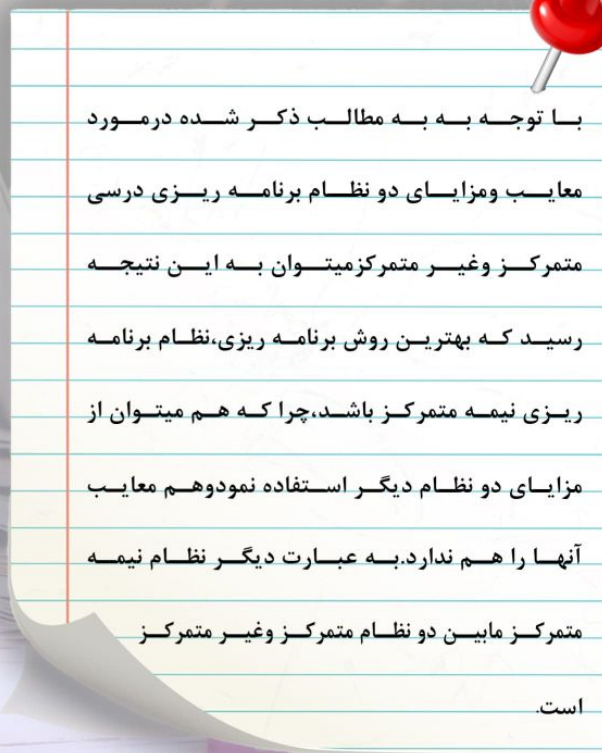 با توجه به به مطالب ذکر شده درمورد
معایب ومزایای دو نظام برنامه ریزی درسی
متمرکز وغیر متمرکزمیتوان به این نتیجه
رسید که بهترین روش برنامه ریزی،نظام برنامه
ریزی نیمه متمرکز باشد،چرا که هم میتوان از
مزایای دو نظام دیگر استفاده نمودوهم معایب
آنها را هم ندارد.به عبارت دیگر نظام نیمه
متمرکز مابین دو نظام متمرکز وغیر متمرکز
است.